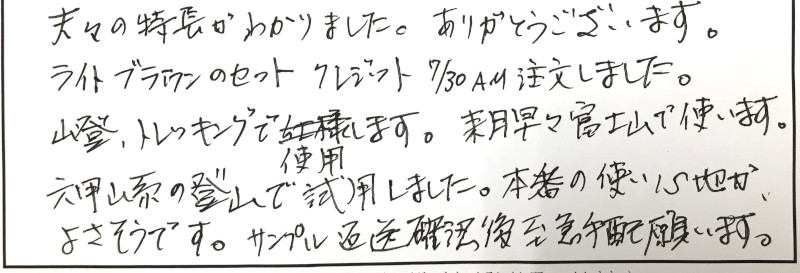 夫々の特長がわかりました。ありがとうございます。
ライトブラウンのセット クレジット 7/30 AM 注文しました。
山登、トレッキングで使用します。来月早々富士山で使います。
六甲山系の登山で試用しました。本番の使い心地が、
よさそうです。サンプル返送確認後至急手配願います。